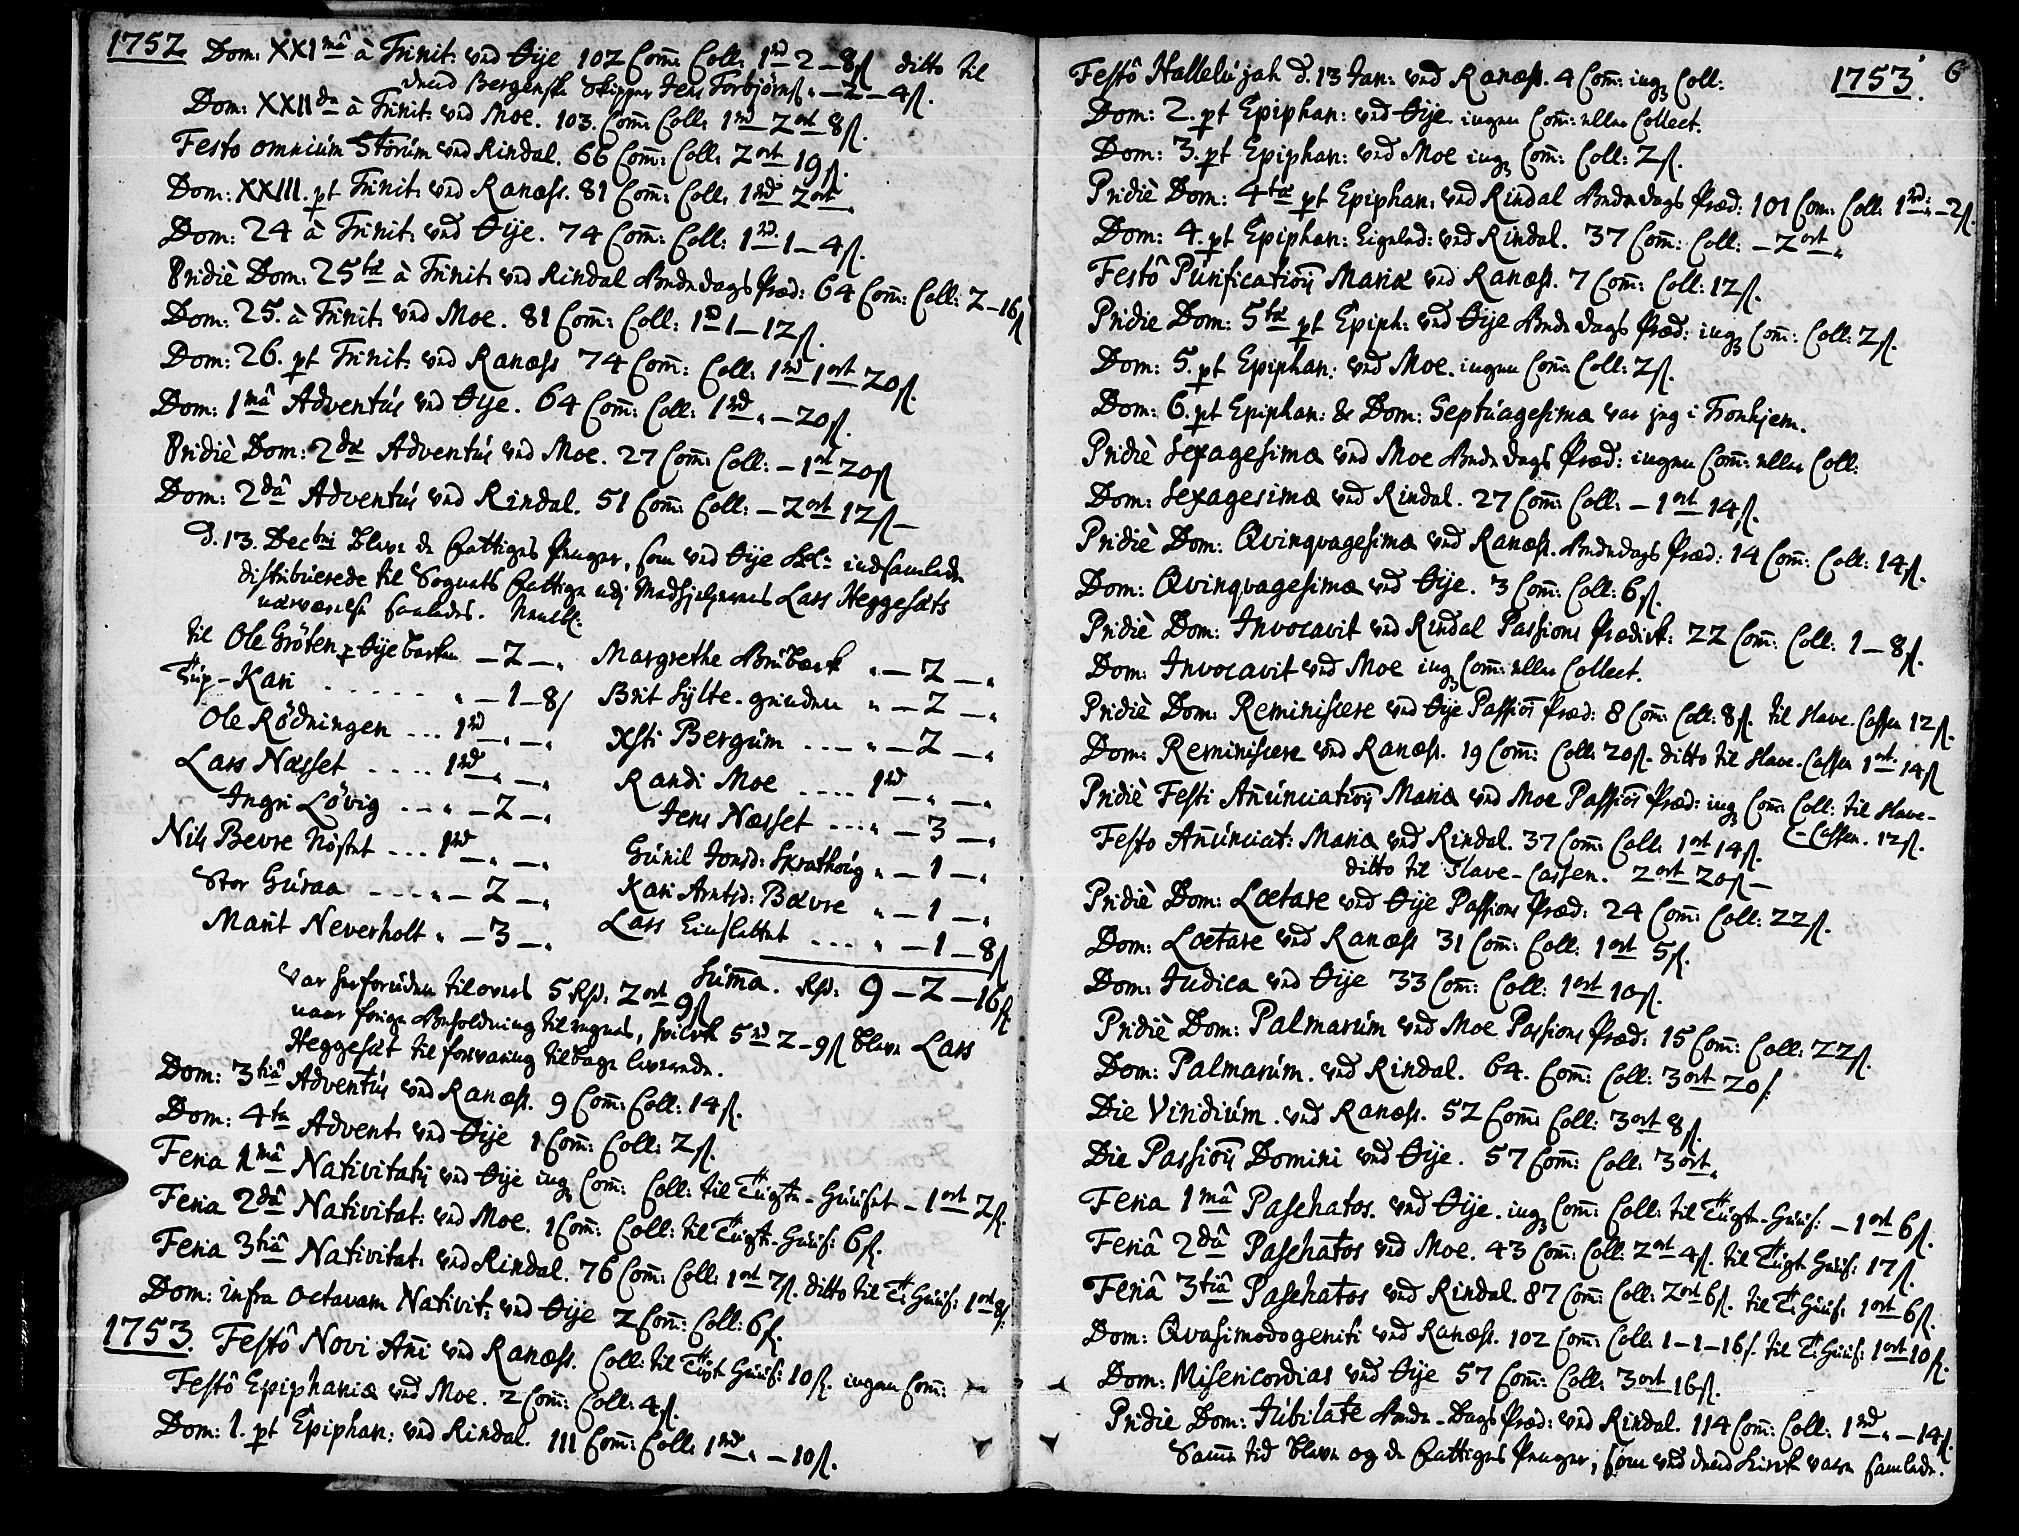 1752 Dom: XXI mâ à Trinit: ved Øije 102 Com̄: Coll: 1 rd 2 – 8 ß ditto til
Bergenske Skipper Jens Torbjørns „ – 2 – 4 ß.
Dom: XXII da à Trinit: ved Moe. 103. Com̄: Coll: 1 rd 2 ort 8 ß.
Festo omnium Storum ved Rindal. 66 Com̄: Coll: 2 ort 19 ß.
Dom: XXIII. pt Trinit: ved Ranæss. 81 Com̄: Coll: 1 rd 2 ort.
Dom: 24 à Trinit: ved Øije. 74 Com̄: Coll: 1 rd 1 – 4 ß.
Pridiè Dom: 25 tæ à Trinit: ved Rindal Bededags Præd: 64 Com̄: Coll: 2 – 16 ß
Dom: 25. à Trinit: ved Moe. 81 Com̄: Coll: 1 rd 1 – 12 ß.
Dom: 26. pt Trinit: ved Ranæss 74 Com̄: Coll: 1 rd 1 ort 20 ß.
Dom: 1 mâ Adventús ved Øije. 64 Com̄: Coll: 1 rd „ – 20 ß.
Pridiè Dom: 2 dæ Adventús ved Moe. 27 Com̄: Coll: – 1 ort 20 ß
Dom: 2 dâ Adventús ved Rindal. 51 Com̄: Coll: – 2 ort 12 ß –
d. 13. Decbri bleve de Fattiges Penger, som ved Øije indsamlede
distribuerede til Sognets Fattige udj Medhjelpernes Lars Heggesæts
nærværelse saaledes. Neml:
til Ole Gröten Øijebakken – 2 – „ Margrethe Brubæck „ – 2 – „
Kari . . . . . „ – 1 – 8 ß Brit Sylte-grinden „ – 2 – „
Ole Rødningen . . . 1 rd „ – „ Xsti Bergum . . . „ – 2 – „
Lars Næsset . . . . 1 rd „ – „ Randi Moe . . . . 1 rd – „ – „
Ingri Løvig . . . „ – 2 – „ Jens Næsset . . . „ – 3 – „
Nils Bevre . . . 1 rd – „ – „ Gunil Jonsd: Skrathoug „ – 1 – „
Stor Guraa . . . . „ – 2 – „ Kari Arntsd: Bævre „ – 1 – „
Marit Neverholt „ – 3 – „ Lars . . . „ – 1 – 8 ß
Sum̄a. Rd: 9 – 2 – 16 ß
var herforuden tilovers 5 Rd: 2 ort 9 ß
naar forige Beholdning tilregnes, hvilke 5 rd 2 – 9 ß bleve Lars
Heggesæt til forvaring tilbage leverede.
Dom: 3 tiâ Adventús ved Ranæss. 9 Com̄: Coll: 14 ß.
Dom: 4 ta Advent: ved Øije 1 Com̄: Coll: 2 ß.
Feria 1 mâ Nativitatis ved Øije ing Com̄: Coll: til Tugte-Huuset – 1 ort 2 ß.
Feria 2 dâ Nativitat: ved Moe. 1 Com̄: Coll: til Tugt-Huus: 6 ß.
Feria 3 tiâ Nativitat: ved Rindal. 76 Com̄: Coll: 1 ort 7 ß. ditto til T: Huus: 1 ort 8 ß.
Dom: infra octavam Nativit: ved Øije 2 Com̄: Coll: 6 ß.
1753. Festô Novi An̄i ved Ranæss. Coll: til Tugt Huus: 10 ß. ingen Com̄:
Festô Epiphaniæ ved Moe. 2 Com̄: Coll: 4 ß.
Dom: 1. pt Epiphan: ved Rindal. 111 Com̄: Coll: 1 rd „ – 10 ß.
1753. 6
Festô Hallelujah d. 13 Jan: ved Ranæss. 4 Com̄: ing Coll:
Dom: 2. pt Epiphan: ved Øije. ingen Com̄: eller Collect.
Dom: 3. pt Epiphan: ved Moe ing Com̄: Coll: 2 ß.
Pridiè Dom: 4 tæ pt Epiphan: ved Rindal Bededags Præd: 101 Com: Coll: 1 rd: „ – 2 ß.
Dom: 4. pt Epiphan: ved Rindal. 37 Com̄: Coll: – 2 ort „
Festô Purificationis Mariæ ved Ranæss. 7 Com̄: Coll: 12 ß.
Pridie Dom: 5 tæ pt Epiph: ved Øije Bededags Præd: ing Com̄: Coll: 2 ß.
Dom: 5. pt Epiphan: ved Moe. ingen Com̄: Coll: 2 ß.
Dom: 6. pt Epiphan: & Dom: Septuagesimæ var jeg i Tronhjem.
Pridiè Sexagesimæ ved Moe Bededags Præd: ingen Com̄: eller Coll:
Dom: Sexagesimæ ved Rindal. 27 Com̄: Coll: – 1 ort 14 ß.
Pridiè Dom: Qvinqvagesimæ ved Ranæss. Bededags Præd: 14 Com̄: Coll: 14 ß.
Dom: Qvinqvagesimæ ved Øije. 3 Com̄: Coll: 6 ß.
Pridiè Dom: Invocavit ved Rindal Passions Prædick: 22 Com̄: Coll: 1 – 8 ß.
Dom: Invocavit ved Moe ing Com̄: eller Collect.
Pridiè Dom: Reminiscere ved Øije Passion Præd: 8 Com̄: Coll: 8 ß. til Slave-Cassen 12 ß.
Dom: Reminiscere ved Ranæss. 19 Com̄: Coll: 20 ß. ditto til Slave-Cassen 1 ort 14 ß
Pridiè Festi An̄unciationis Mariæ ved Moe Passions Præd: ing Com̄: Coll: til Slave-
Cassen. 12 ß.
Festo An̄únciat: Mariæ ved Rindal. 37 Com̄: Coll: 1 ort 14 ß.
ditto til Slave-Cassen. 2 ort 20 ß –
Pridiè Dom: Lœtare ved Øije Passions Præd: 24 Com̄: Coll: 22 ß.
Dom: Lœtare ved Ranæss 31 Com̄: Coll: 1 ort 5 ß.
Dom: Judica ved Øije 33 Com̄: Coll: 1 ort 10 ß.
Pridiè Dom: Palmarum ved Moe Passions Præd: 15 Com̄: Coll: 22 ß.
Dom: Palmarúm. ved Rindal. 64. Com̄: Coll: 3 ort 20 ß
Die Viridiúm. ved Ranæss. 52 Com̄: Coll: 3 ort 8 ß.
Die Passionis Domini ved Øije. 57 Com̄: Coll: 3 ort „
Feria 1 mâ Paschatos. ved Øije. ing Com̄: Coll: til Tugte-Huus: – 1 ort 6 ß.
Feriâ 2 dâ Paschatos ved Moe. 43 Com̄: Coll: 2 ort 4 ß. til Tugt Huus: 17 ß.
Feriâ 3 tiâ Paschatos ved Rindal. 87 Com̄: Coll: 2 ort 6 ß. til T: Huus: 1 ort 6 ß.
Dom: Qvasimodogeniti ved Ranæss. 102 Com̄: Coll: 1 – 1 – 16 ß. til T: Huus: 1 ort 10 ß.
Dom: Misericordias ved Øije 57 Com̄: Coll: 3 ort 16 ß.
Pridie Dom: Jubilate Bede-Dags Præd: ved Rindal. 114 Com̄: Coll: 1 rd „ – 14 ß.
Sam̄e tid bleve og de Fattiges Penger, som ved Kirck vare samlede.